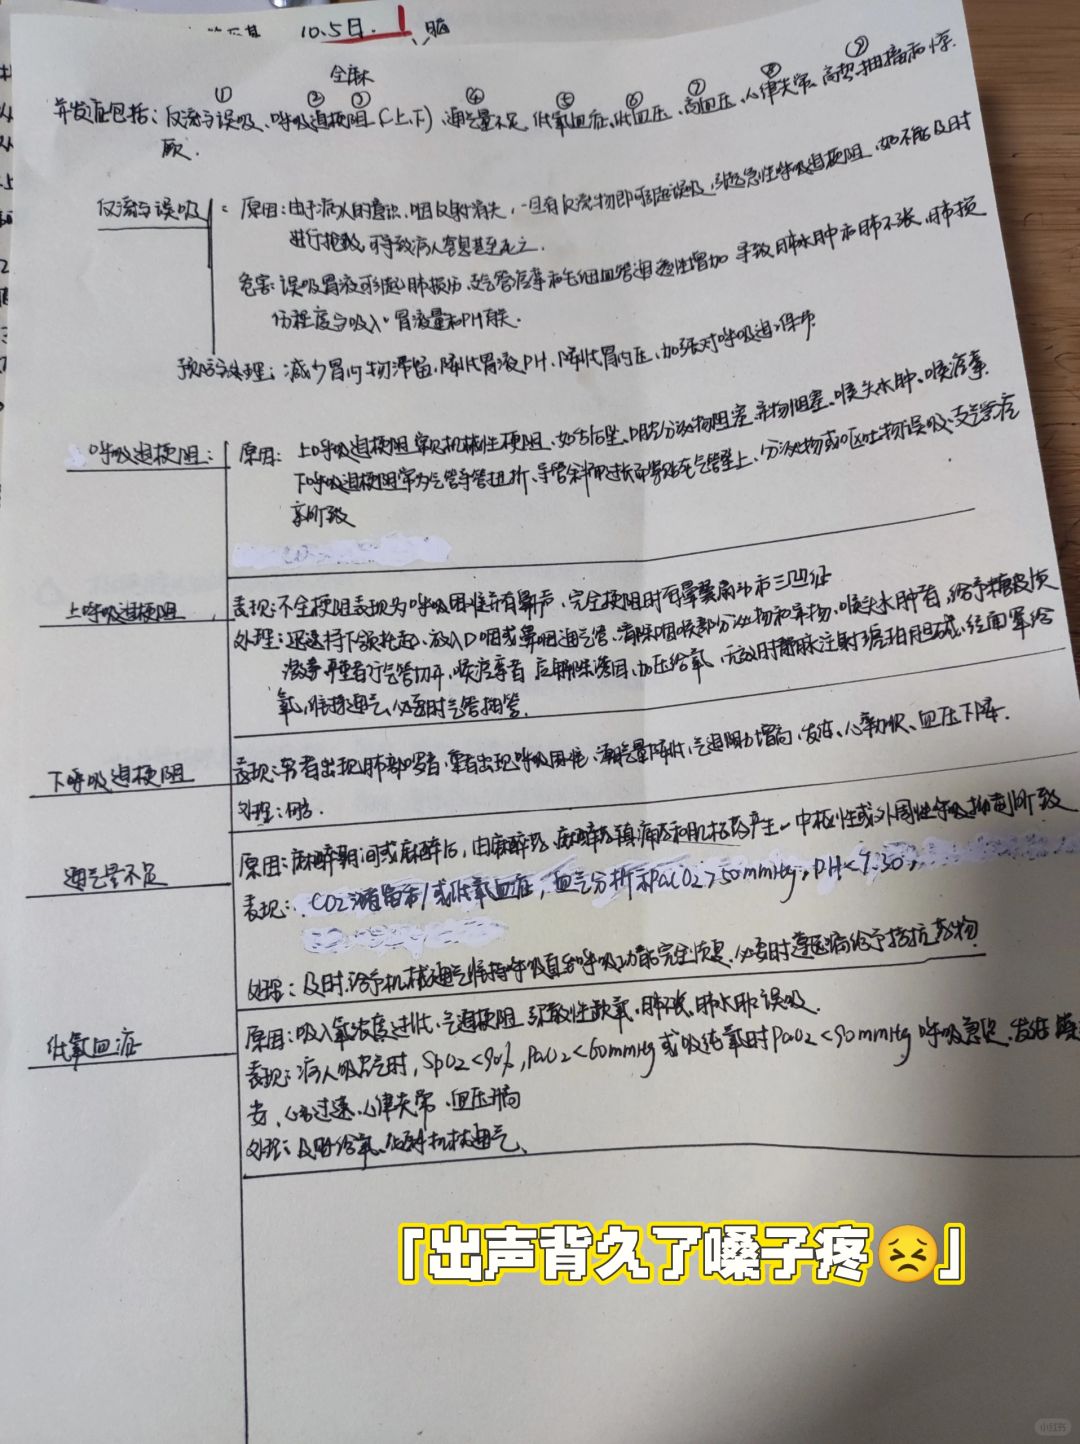 10.5日. 1
全麻
① ② ③ ④ ⑤ ⑥ ⑦ ⑧ ⑨
并发症包括：反流与误吸、呼吸道梗阻（上、下）、通气量不足、低氧血症、低血压、高血压、心律失常、高热、抽搐和惊
厥.
反流与误吸：原因：由于病人的意识、咽反射消失，一旦有反流物即可引起误吸，引起急性呼吸道梗阻，如不能及时
进行抢救，可导致病人窒息甚至死亡.
危害：误吸胃液可引起肺损伤、支气管痉挛和毛细血管通透性增加 导致肺水肿和肺不张，肺损
伤程度与吸入胃液量和PH有关.
预防与处理：减少胃内物滞留，降低胃液PH，降低胃内压，加强对呼吸道保护.
呼吸道梗阻：原因：上呼吸道梗阻常见机械性梗阻，如舌后坠、口腔分泌物阻塞、异物阻塞、喉头水肿、喉痉挛.
下呼吸道梗阻常为气管导管扭折、导管斜面过长而紧贴在气管壁上、分泌物或呕吐物误吸、支气管痉
挛所致
上呼吸道梗阻 表现：不全梗阻表现为呼吸困难并有鼾声，完全梗阻时有鼻翼扇动和三凹征
处理：迅速将下颌托起，放入口咽或鼻咽通气管，清除咽喉部分泌物和异物，喉头水肿者，给予糖皮质
激素 严重者行气管切开，喉痉挛者 应解除诱因、加压给氧，无效时静脉注射琥珀胆碱，经面罩给
氧，维持通气，必要时气管插管.
下呼吸道梗阻 表现：轻者出现肺部啰音，重者出现呼吸困难、潮气量降低、气道阻力增高、发绀、心率加快、血压下降.
处理：
通气量不足 原因：麻醉期间或麻醉后，由麻醉药、麻醉性镇痛药和肌松药产生中枢性或外周性呼吸抑制所致
表现：CO2潴留和/或低氧血症，血气分析示PaCO2>50mmHg，PH<7.30，
处理：及时给予机械通气维持呼吸直至呼吸功能完全恢复，必要时遵医嘱给予拮抗药物
低氧血症 原因：吸入氧浓度过低、气道梗阻、弥散性缺氧、肺不张、肺水肿、误吸.
表现：病人吸空气时，SpO2<90%，PaO2<60mmHg或吸纯氧时PaO2<90mmHg 呼吸急促、发绀、躁
安、心动过速、心律失常、血压升高
处理：及时给氧、必要时机械通气、
「出声背久了嗓子疼😣」
小红书